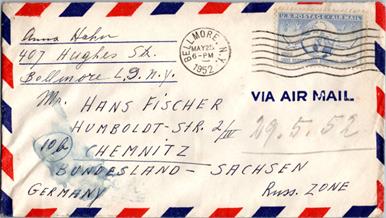 Anna Hahn
407 Hughes St.
Bellmore L.I. N.Y.
BELLMORE, N.Y.
MAY 25
6-PM
1952
U.S. POSTAGE - AIR MAIL
VIA AIR MAIL
29.5.52
Mr. HANS FISCHER
HUMBOLDT-STR. 2/III
10b CHEMNITZ
BUNDESLAND - SACHSEN
GERMANY Russ. ZONE